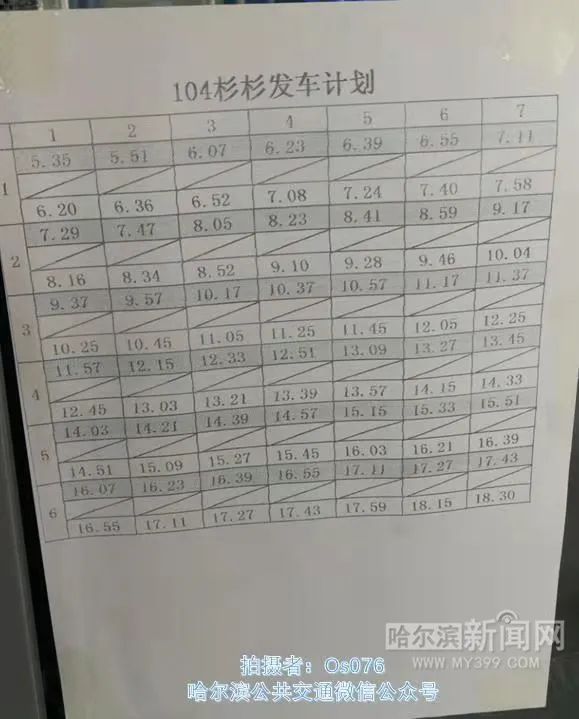 104杉杉发车计划
1 2 3 4 5 6 7
5.35 5.51 6.07 6.23 6.39 6.55 7.11
1
6.20 6.36 6.52 7.08 7.24 7.40 7.58
7.29 7.47 8.05 8.23 8.41 8.59 9.17
2
8.16 8.34 8.52 9.10 9.28 9.46 10.04
9.37 9.57 10.17 10.37 10.57 11.17 11.37
3
10.25 10.45 11.05 11.25 11.45 12.05 12.25
11.57 12.15 12.33 12.51 13.09 13.27 13.45
4
12.45 13.03 13.21 13.39 13.57 14.15 14.33
14.03 14.21 14.39 14.57 15.15 15.33 15.51
5
14.51 15.09 15.27 15.45 16.03 16.21 16.39
16.07 16.23 16.39 16.55 17.11 17.27 17.43
6
16.55 17.11 17.27 17.43 17.59 18.15 18.30
哈尔滨新闻网
WWW.MY399.COM
拍摄者：Os076
哈尔滨公共交通微信公众号